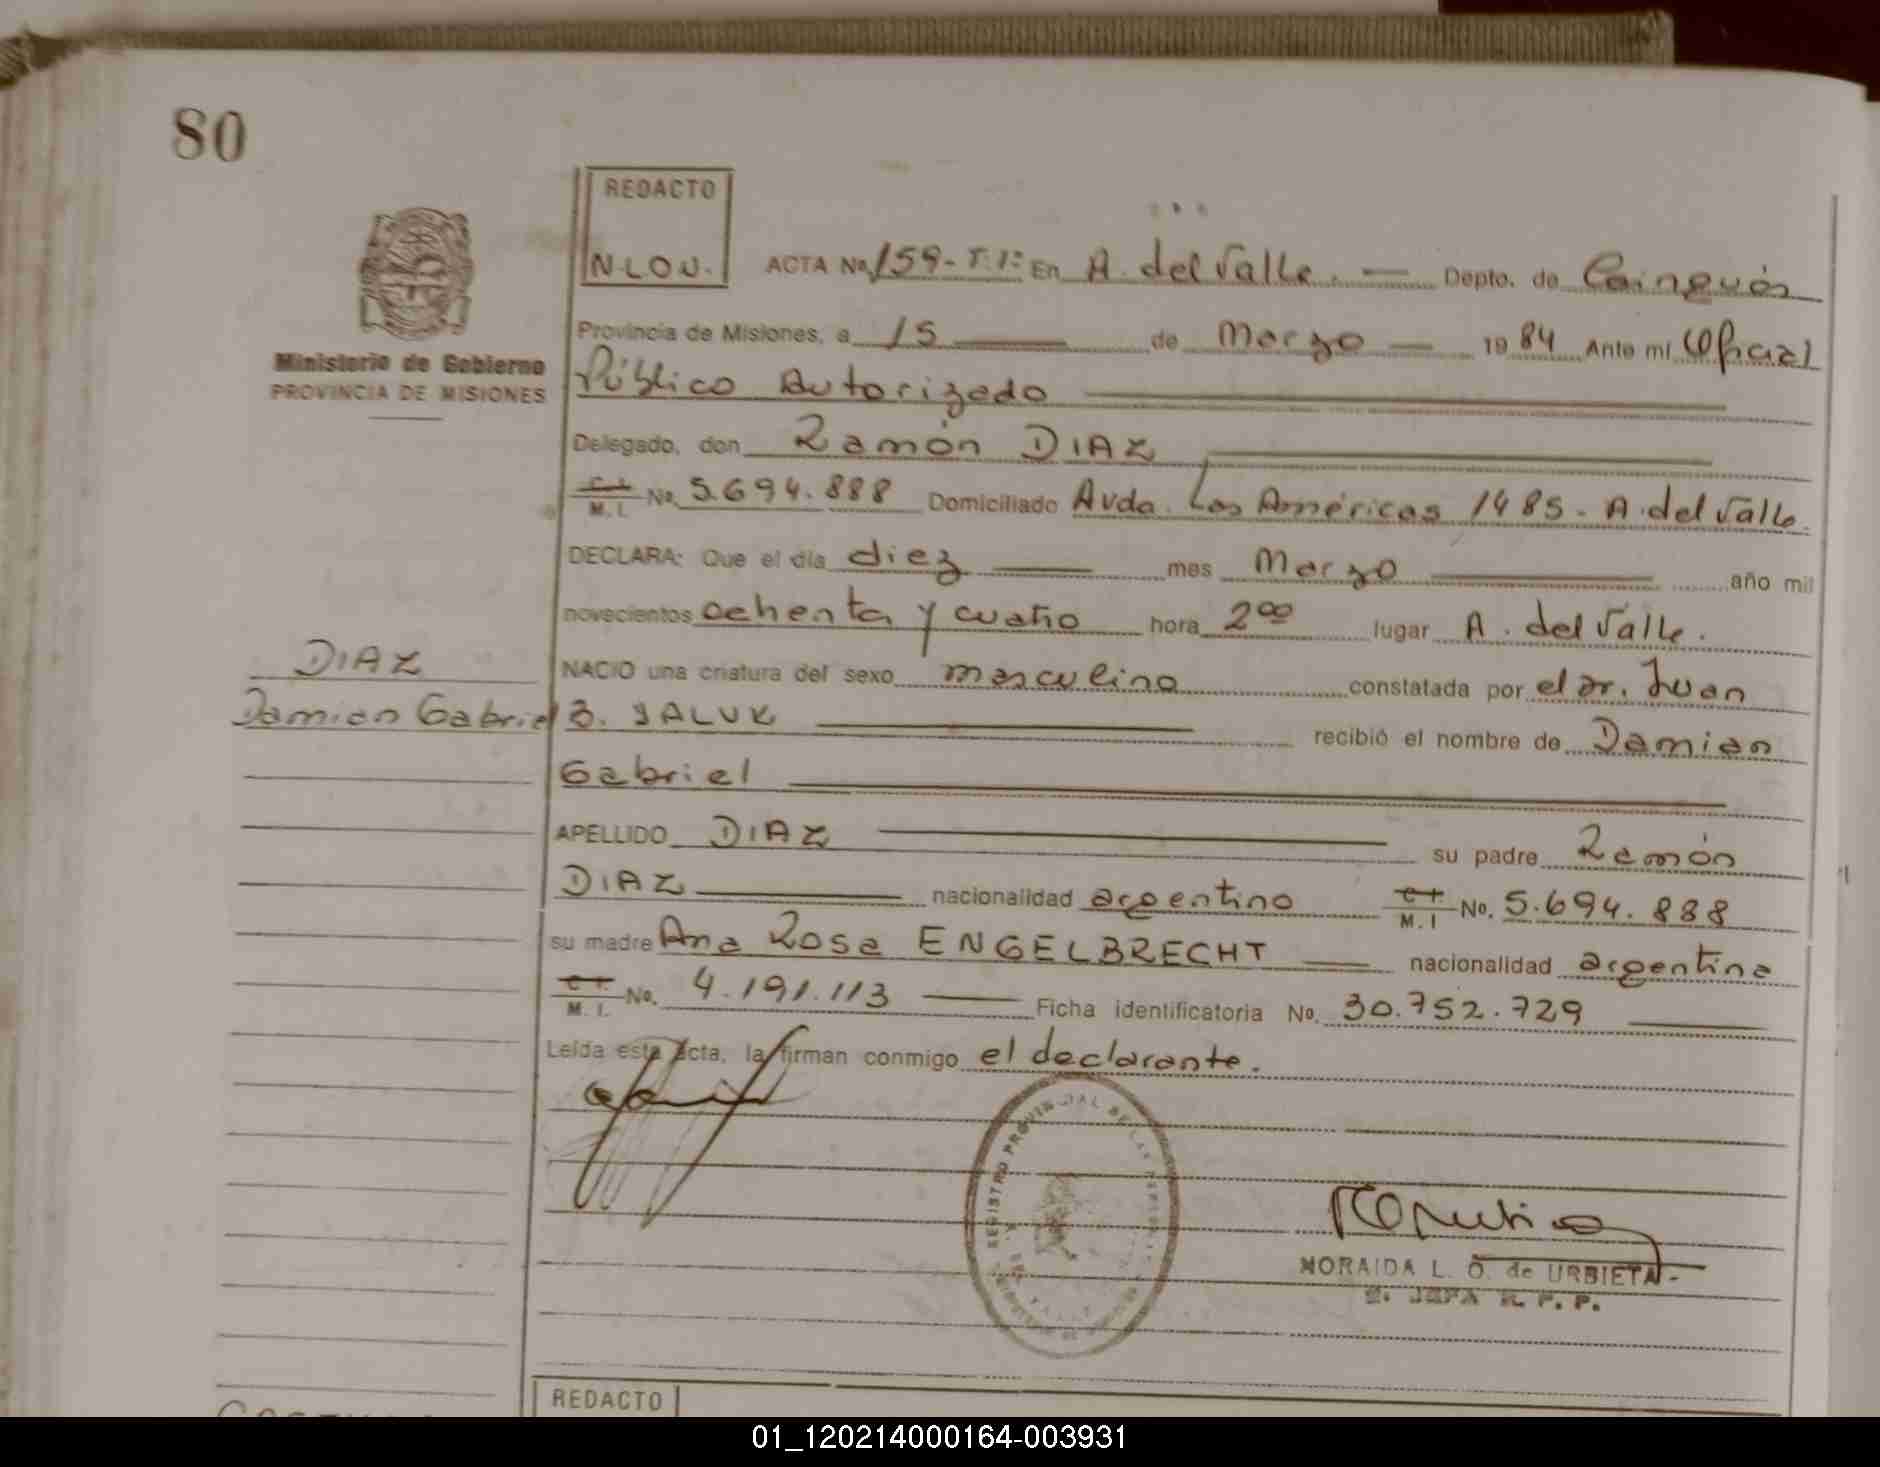 80
REDACTO
N.L.O.U.
ACTA No. 159-T.1º En A. del Valle. Depto. de Cainguás
Provincia de Misiones, a 15 de Marzo 1984 Ante mi Oficial
Ministerio de Gobierno
PROVINCIA DE MISIONES
Público Autorizado
Delegado, don Ramón DIAZ
C.I. M.I. No. 5.694.888 Domiciliado Avda. Las Américas 1485 - A. del Valle.
DECLARA: Que el día diez mes Marzo año mil
novecientos ochenta y cuatro hora 2⁰⁰ lugar A. del Valle.
DIAZ
Damian Gabriel
NACIO una criatura del sexo masculino constatada por el Dr. Juan
B. YALUK recibió el nombre de Damian
Gabriel
APELLIDO DIAZ su padre Ramón
DIAZ nacionalidad argentino C.I. M.I No. 5.694.888
su madre Ana Rosa ENGELBRECHT nacionalidad argentina
C.I. M.I. No. 4.191.113 Ficha identificatoria No. 30.752.729
Leída esta acta, la firman conmigo el declarante.
REGISTRO PROVINCIAL DE LAS PERSONAS
A. DEL VALLE
NORAIDA L. O. de URBIETA
JEFA R. P. P.
REDACTO
01_120214000164-003931